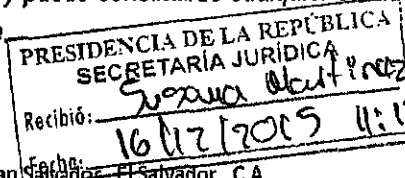 PRESIDENCIA DE LA REPÚBLICA
SECRETARÍA JURÍDICA
Recibió: Susana Martínez
16/12/2015 11:1
Fecha:
Salvador, El Salvador, C.A.